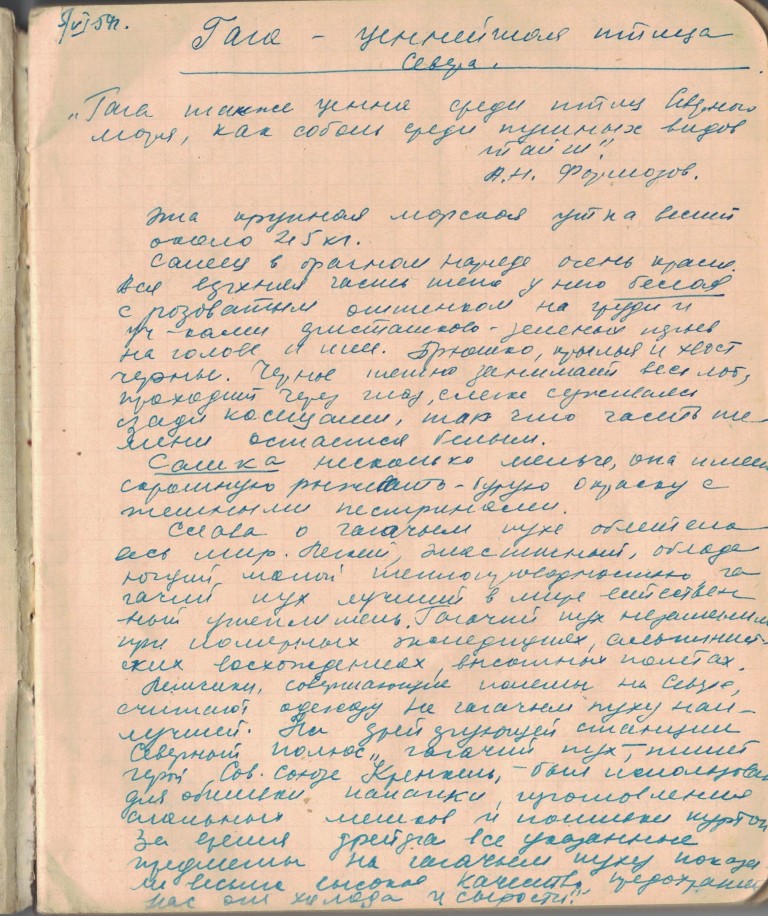 5/VI 54г.
Гага – ценнейшая птица
Севера.
„Гага также ценна среди птиц Северного
моря, как соболь среди пушных видов
тайги".
А.Н. Формозов.
Эта крупная морская утка весит
около 2,5 кг.
Самец в брачном наряде очень красив.
Вся верхняя часть тела у него белая
с розоватым оттенком на груди и
фисташково-зеленых цветов
на голове и шее. Брюшко, крылья и хвост
черны. Черное пятно занимает весь лоб,
проходит через глаз, слегка суживаясь
сзади косицами, так что часть те-
мени остается белым.
Самка несколько мельче, она имеет
скромную рыжевато-бурую окраску с
темными пестринами.
Слава о гагачьем пухе облетела
весь мир. Легкий, эластичный, облада-
ющий малой теплопроводностью, га-
гачий пух лучший в мире естествен-
ный утеплитель. Гагачий пух незаменим
при полярных экспедициях, альпинист-
ских восхождениях, высотных полетах.
Летчики, совершающие полеты на Севере,
считают одежду на гагачьем пуху наи-
лучшей. На дрейфующей станции
Северный полюс „гагачий пух, – пишет
герой Сов. Союза Кренкель, – был использован
для обшивки палатки, изготовления
спальных мешков и пошивки курток
За время дрейфа все указанные
предметы на гагачьем пуху показа
ли весьма высокое качество, предохраняя
нас от холода и сырости."